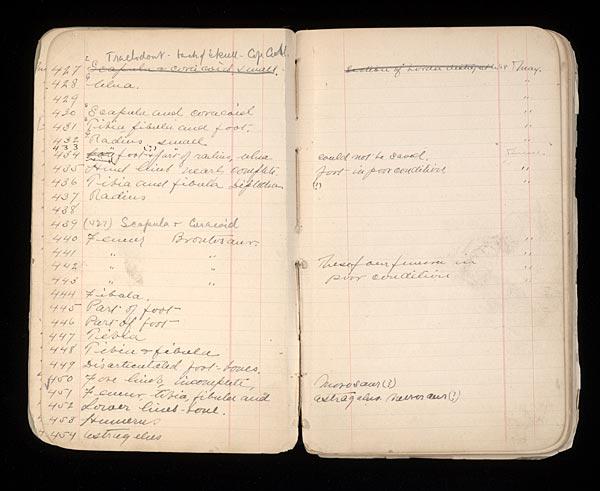 Trachodont - back of skull - Cope Coll.
427 Scapula & coracoid, small.
428 Ulna.
429
430 Scapula and coracoid
431 Tibia fibula and foot.
432 Radius, small
433
434 foot & (?) part of radius, ulna
435 Hind limb nearly complete.
436 Tibia and fibula Diplodocus
437 Radius
438
439 (427) Scapula & Coracoid
440 Femur Brontosaur.
441 " "
442 " "
443 " "
444 Fibula.
445 Part of foot
446 Part of foot
447 Tibia
448 Tibia & fibula
449 Disarticulated foot-bones.
450 Fore limb, incomplete,
451 Femur tibia, fibula and
452 Lower limb-bone.
453 Humerus
454 Astragalus
Section of
May.
"
"
"
"
could not be saved.
foot in poor condition "
(?)
"
These four femora in "
poor condition "
Morosaur (?)
astragalus Morosaur (?)